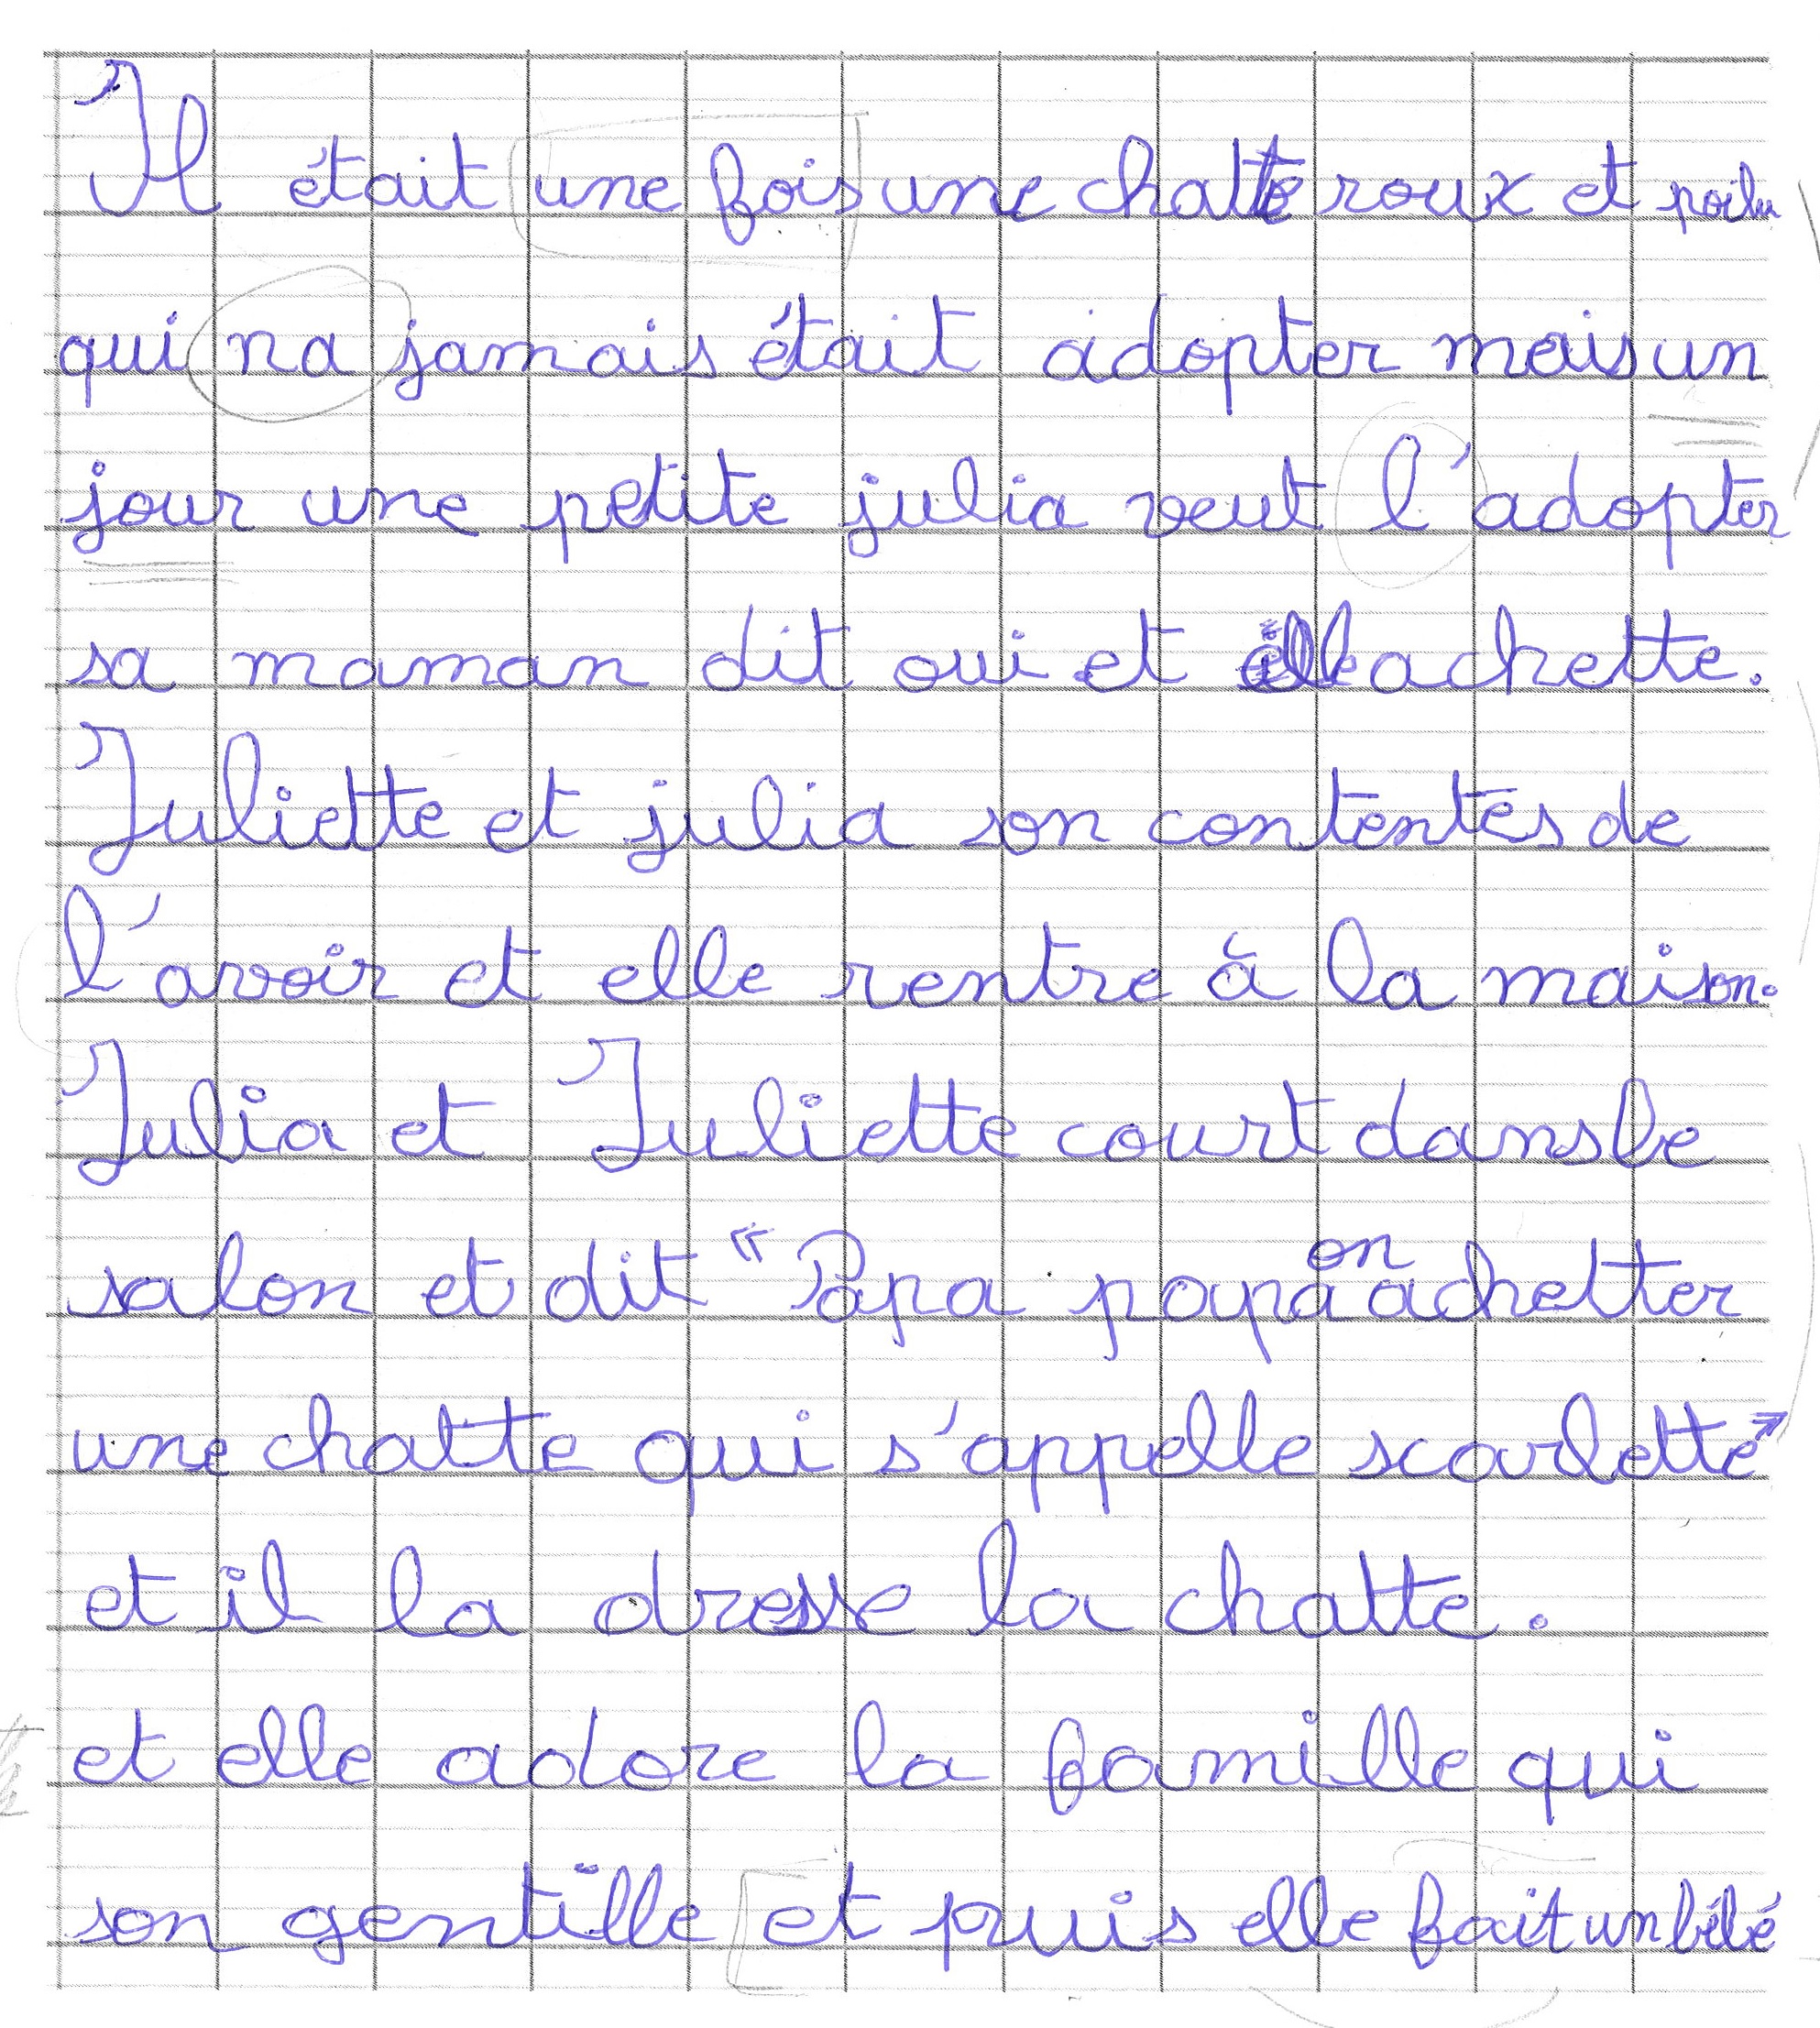 Il était une fois une chatte roux et poilu
qui na jamais était adopter mais un
jour une petite julia veut l'adopter
sa maman dit oui et elle achette.
Juliette et julia son contentes de
l'avoir et elle rentre à la maison.
Julia et Juliette court dans le
salon et dit " Papa papa on achetter
une chatte qui s'appelle scarlette"
et il la dresse la chatte.
et elle adore la famille qui
son gentille et puis elle fait un bébé